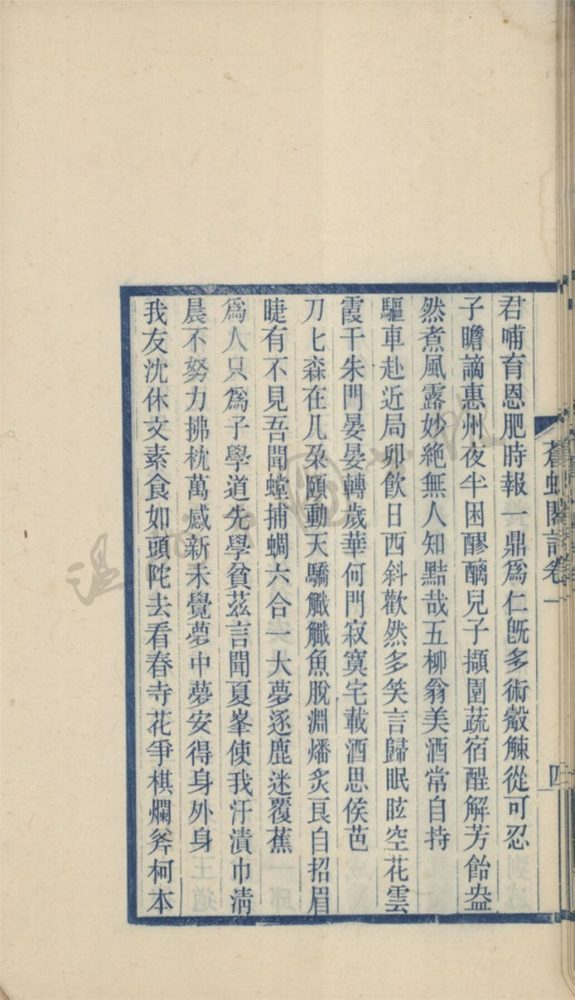 蒼虬閣詩卷一
四
君哺育恩肥時報一鼎爲仁旣多術觳觫從可忍
子瞻謫惠州夜半困醪醨兒子擷園蔬宿酲解芳飴盎
然煮風露妙絶無人知黠哉五柳翁美酒常自持
驅車赴近局卯飲日西斜歡然多笑言歸眠眩空花雲
霞干朱門晏晏轉歲華何門寂寞宅載酒思侯芭
刀匕森在几朶頤動天驕觺觺魚脫淵燔炙良自招眉
睫有不見吾聞螳捕蜩六合一大夢逐鹿迷覆蕉
爲人只爲子學道先學貧茲言聞夏峯使我汗漬巾淸
晨不努力拂枕萬感新未覺夢中夢安得身外身
我友沈休文素食如頭陀去看春寺花爭棋爛斧柯本